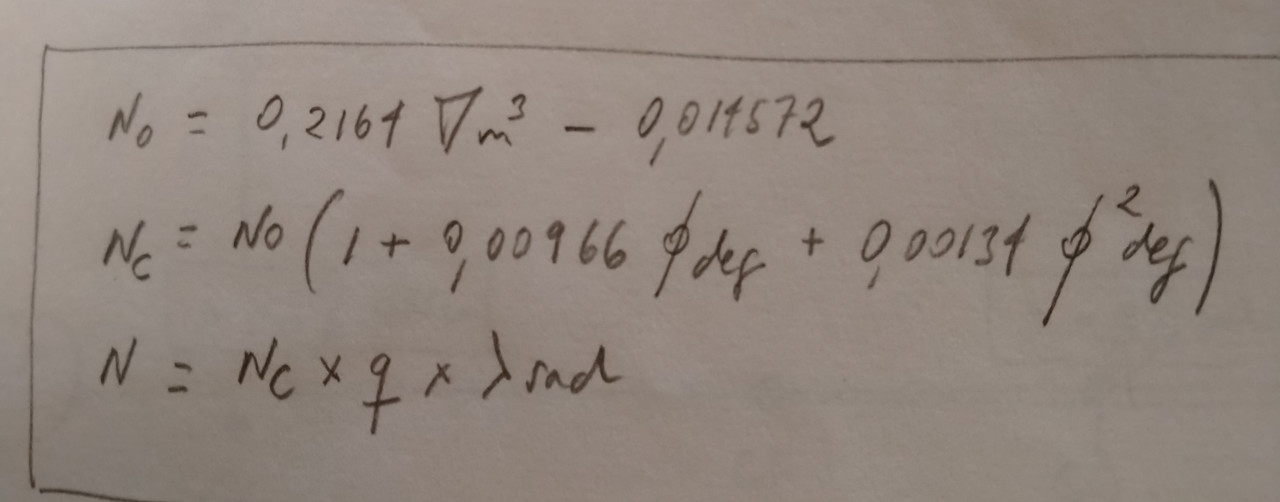 N₀ = 0,2164 ∇m³ - 0,014572
Nc = N₀ (1 + 0,00966 ϕdeg + 0,00134 ϕ²deg)
N = Nc × q × λrad